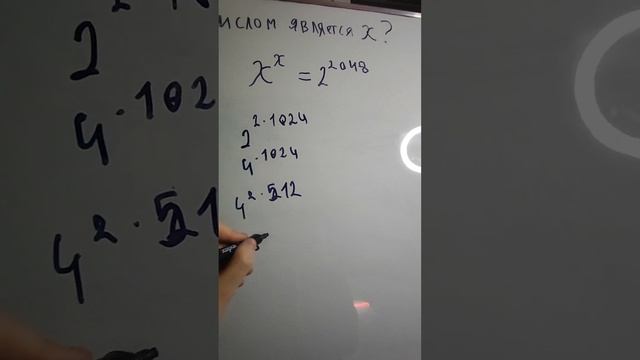 ислом является x?
x^x = 2^2048
2^2·1024
4^·1024
4^2·512